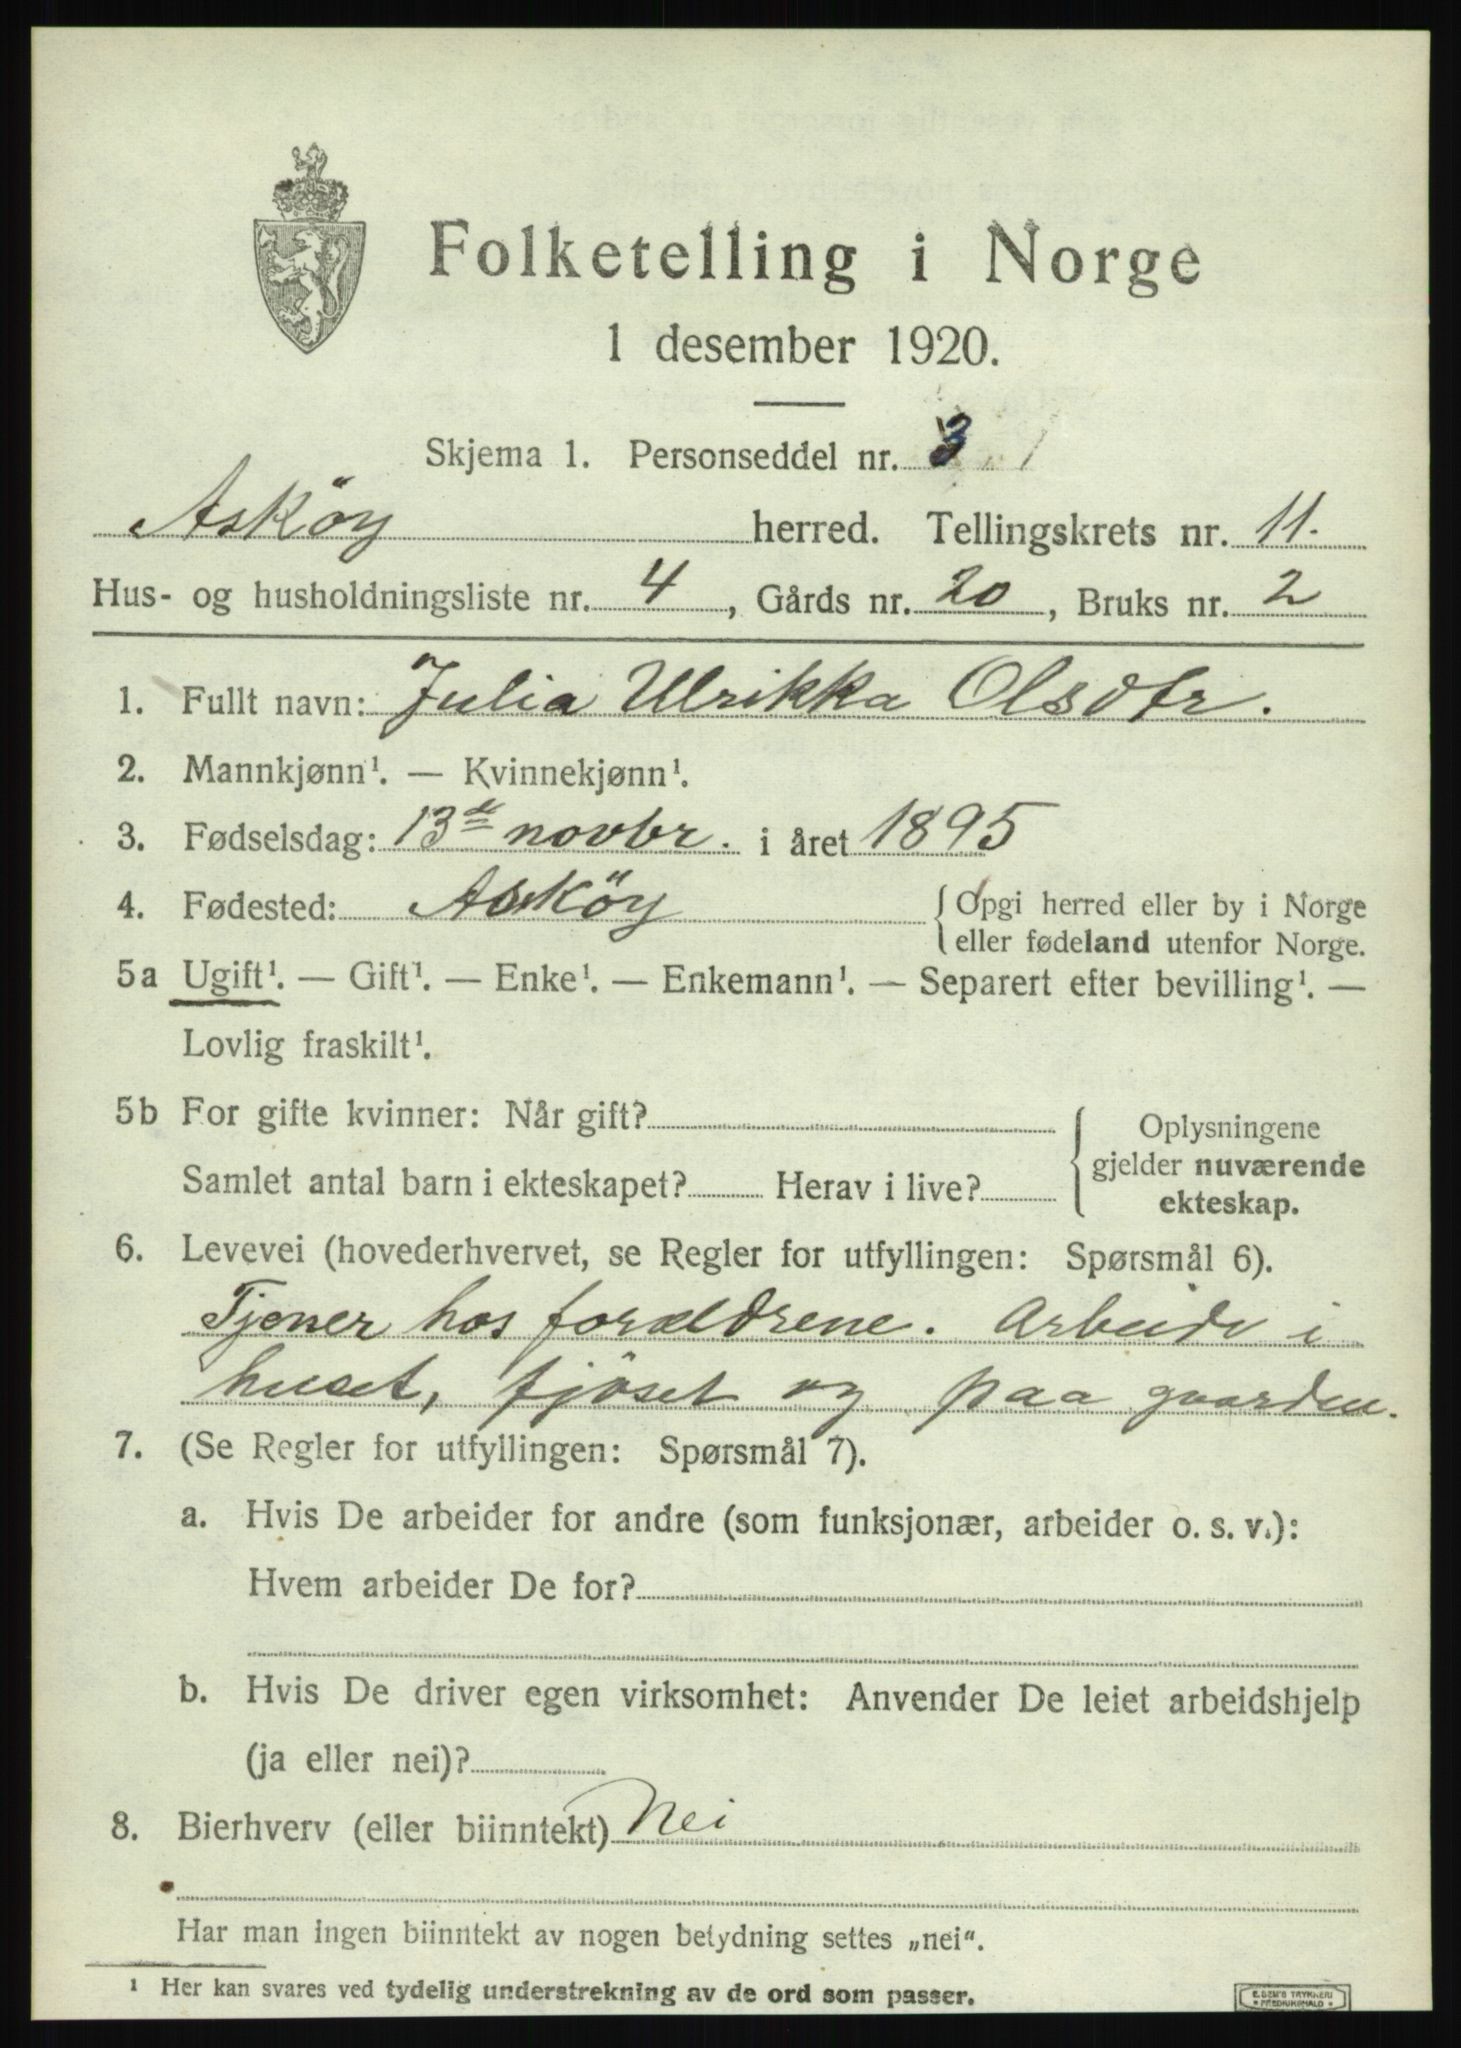 Folketelling i Norge
1 desember 1920.
Skjema 1. Personseddel nr. 3
Asköy herred. Tellingskrets nr. 11.
Hus- og husholdningsliste nr. 4, Gårds nr. 20, Bruks nr. 2
1. Fullt navn: Julia Ulrikka Olsdtr.
2. Mannkjønn¹. — Kvinnekjønn¹.
3. Fødselsdag: 13de novbr. i året 1895
4. Fødested: Asköy { Opgi herred eller by i Norge
eller fødeland utenfor Norge.
5a Ugift¹. — Gift¹. — Enke¹. — Enkemann¹. — Separert efter bevilling¹. —
Lovlig fraskilt¹.
5b For gifte kvinner: Når gift? { Oplysningene
gjelder nuværende
Samlet antal barn i ekteskapet? Herav i live? ekteskap.
6. Levevei (hovederhvervet, se Regler for utfyllingen: Spørsmål 6).
Tjener hos forældrene. Arbeide i
huset, fjöset og paa gaarden.
7. (Se Regler for utfyllingen: Spørsmål 7).
a. Hvis De arbeider for andre (som funksjonær, arbeider o. s. v.):
Hvem arbeider De for?
b. Hvis De driver egen virksomhet: Anvender De leiet arbeidshjelp
(ja eller nei)?
8. Bierhverv (eller biinntekt) Nei
Har man ingen biinntekt av nogen betydning settes „nei“.
¹ Her kan svares ved tydelig understrekning av de ord som passer.
E. SEM'S TRYKKERI
FREDRIKSHALD